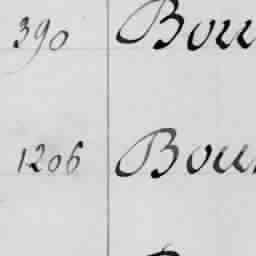 390 Bou
1206 Bou